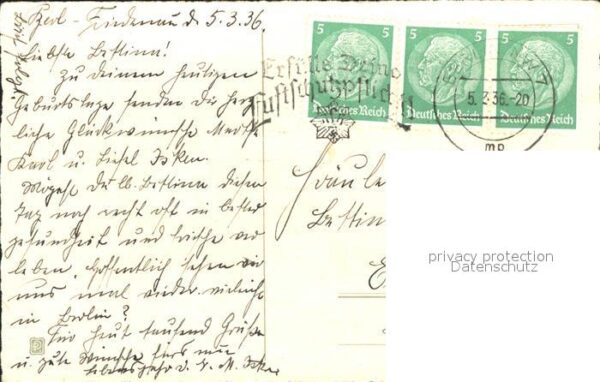 Berl.-Friedenau d. 5.3.36.
Liebste Bettina!
Zu Deinem heutigen
Geburtstage senden Dir herz-
liche Glückwünsche Martha
Karl u. Liesel Isken.
Mögest Du lb. Bettina diesen
Tag noch recht oft in bester
Gesundheit und Frische ver
leben. Hoffentlich sehen wir
uns mal wieder vielleicht
in Berlin?
Für heut tausend Grüße
u. gute Wünsche fürs neue
Lebensjahr D. L. M. Isken
5 5 5 5 5 5
Deutsches Reich Deutsches Reich Deutsches Reich
Erfülle Deine
Luftschutzpflicht!
5.3.36.-20
mp
Fräulein
Bettina
privacy protection
Datenschutz